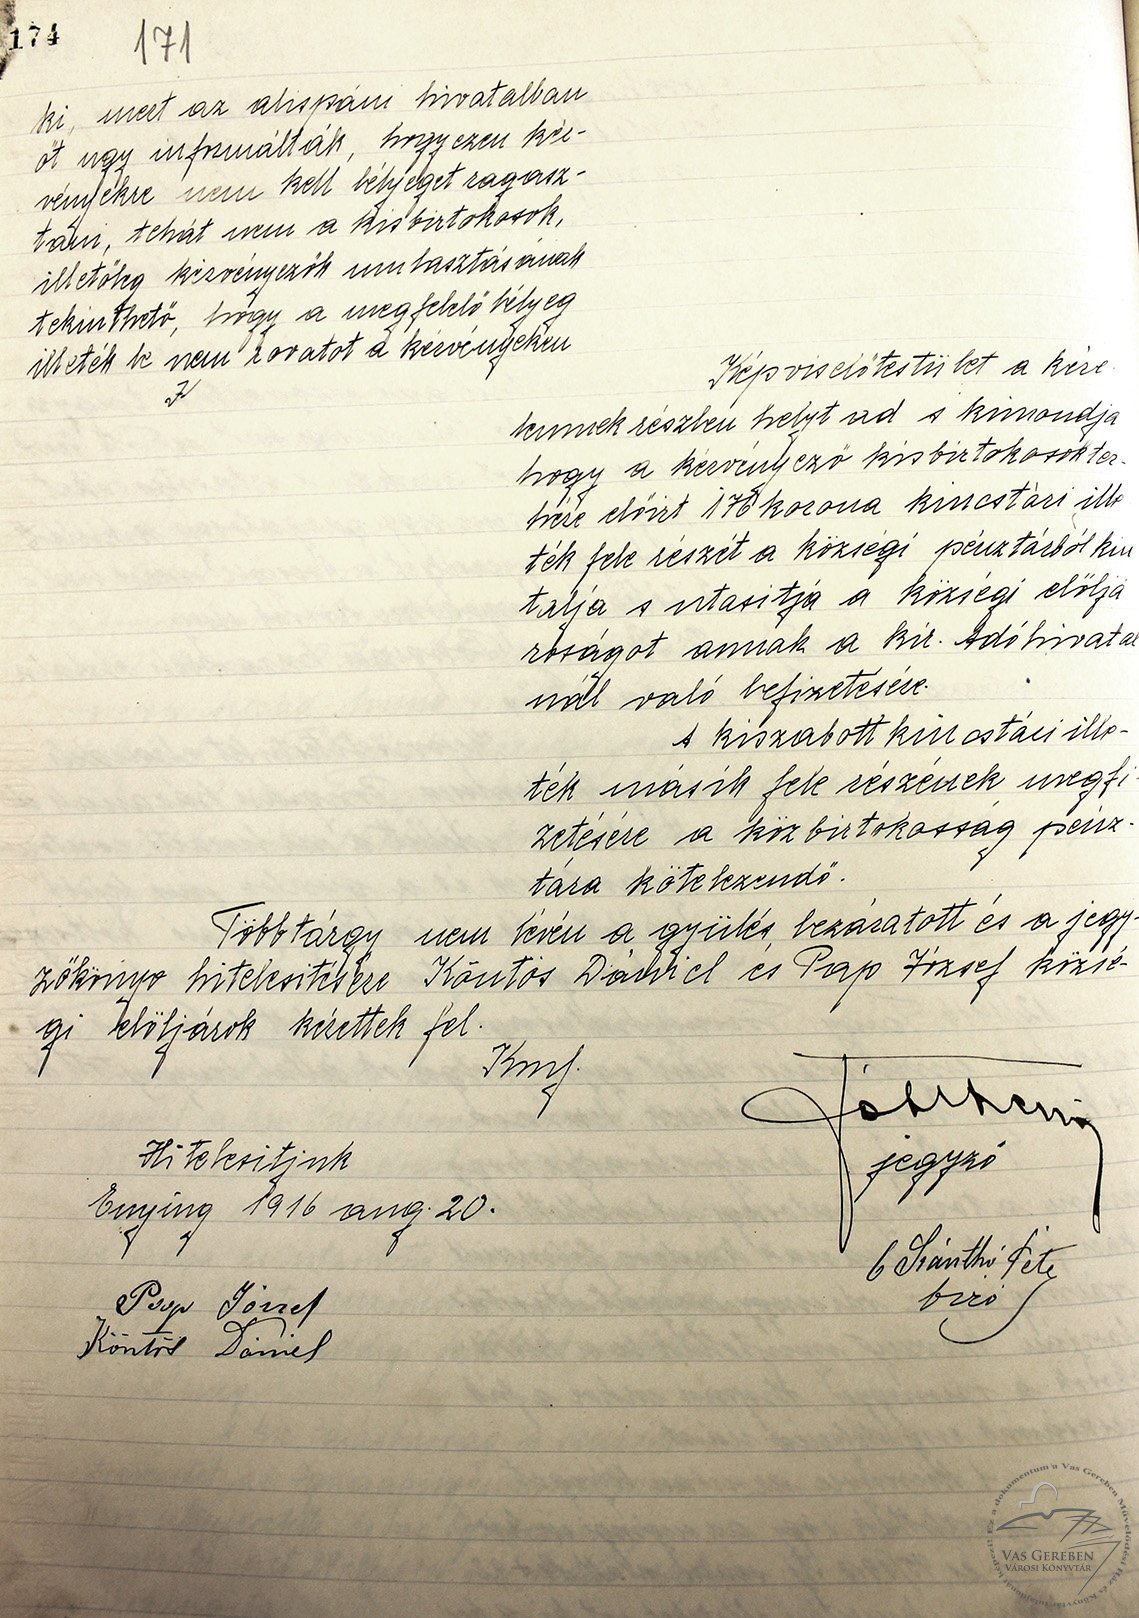 174
171
ki, mert az alispáni hivatalban
őt ugy informálták, hogy ezen kér-
vényekre nem kell bélyeget ragasz-
tani, tehát nem a kisbirtokosok,
illetőleg kérvényezők mulasztásának
tekinthető, hogy a megfelelő bélyeg
illeték le nem rovatot a kérvényeken
Képviselőtestület a kére
lemnek részben helyt ad s kimondja
hogy a kérvényező kisbirtokosok ter-
hére előirt 176 korona kincstári ille
ték fele részét a községi pénztárból kiu
talja s utasitja a községi elöljá
róságot annak a kir. Adóhivatal
nál való befizetésére.
A kiszabott kincstári ille-
ték másik fele részének megfi-
zetésére a közbirtokosság pénz-
tára kötelezendő.
Több tárgy nem lévén a gyülés bezáratott és a jegy-
zőkönyv hitelesitésére Köntös Dániel és Pap József közsé-
gi elöljárok kérettek fel.
Kmf.
jegyző
Hitelesitjük
Enying 1916 aug. 20.
ifj Szánthó Péte
biró
Pap József
Köntös Dániel
Ez a dokumentum a Vas Gereben Művelődési Ház és Könyvtár tulajdonát képezi!
VAS GEREBEN
VÁROSI KÖNYVTÁR